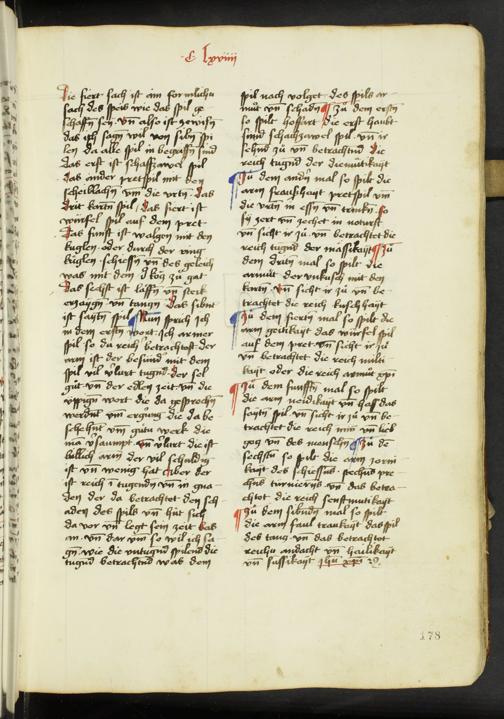 C lxviiii
die fiert sach ist ain förmlichu
sach des spils wie das spil ge
schaffen sey vñ also ist zewisen
das ich sagen wil von siben spi
len da alle spil in begriffen sind
das erst ist schaffzawel spil
das ander pretspil mit den
scheiblachen vm die vrten das
drit karten spil das fiert ist
würfel spil auf dem pret
das fünft ist walgen mit den
kuglen oder durch der ring
kuglen schiessen vñ des geleich
was mit dem zu gat
das sechst ist laffen vñ sterk
erzaigen vñ tanczen das sibent
ist sayten spil Nun sprich ich
in dem ersten wort ich armer
spil so da reich betrachtost der
arm ist der besünd mit dem
spil vil verlurt tugend der sel
gůt vñ der edlen zeit vñ die
üppigen wort die da gesprochen
werdent vm ergrung die da be
schehent vñ gůtu werk die
ma versaumpt vñ verlurt die ist
billich arm der vil schuldig
ist vñ wenig hat Aber der
ist reich in tugenden vñ in gna
den der da betrachtet den sch
aden des spils vñ hüt sich
da vor vñ legt sein zeit bas
an vñ dar vm so wil ich sa
gen wie die vntugend spilend die
tugend betrachtend was dem
spil nach volget des spils ar
můt vñ schaden Zů dem ersten
so spilt hoffart die erst haubt
sünd schachzawel spil vñ ir
sehend zů vñ betrachtend die
reich tugend der diemütikayt
Zů dem andern mal so spilt die
arm frausshayt pretspil vm
die vrten in essen vñ trinken so
sy zert vñ zechet in
vñ sicht ir zů vñ betrachtet die
reich tugend der massikayt Zů
dem driten mal so spilt die
armůt der vnkusch mit den
karten vñ sicht ir zů vñ be
trachtet die reich kuschhayt
Zů dem fierten mal so spilt die
arm geitikayt das würfel spil
auf dem pret vñ sicht ir zů
vñ betrachtet die reich milti
kayt oder die reich armůt xpi
Zů dem fünfften mal so spilt
die arm neidikayt vñ hass das
sayten spil vñ sicht ir zů vñ be
trachtet die reich min vñ lieb
gog vñ des menschen Zů de
sechsten so spilt die arm zorni
kayt des schiessens stechens pre
chens turnierens vñ das betra
chtot die reich senftmütikayt
Zů dem sibenden mal so spilt
die arm faul traukayt das spil
des tanz vñ das betrachtot
reichu andacht vñ hailikayt
vñ süssikayt jhu xpi
178